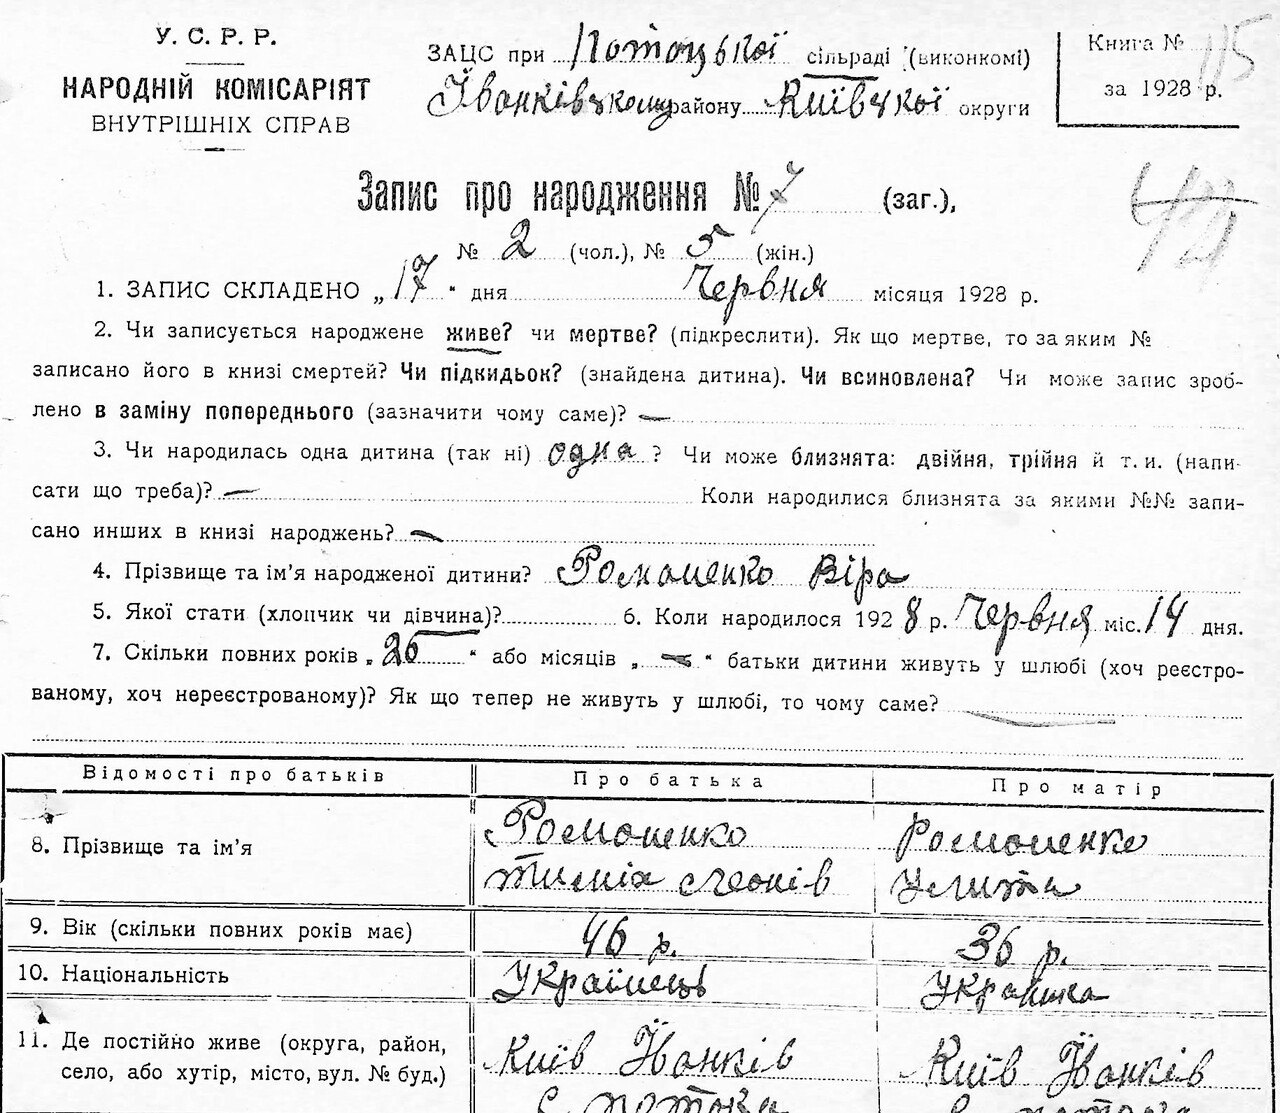 У. С. Р. Р.
НАРОДНІЙ КОМІСАРІЯТ
ВНУТРІШНІХ СПРАВ
ЗАЦС при Потоцької сільраді (виконкомі)
Іванківському району Київської округи
Книга № 115
за 1928 р.
Запис про народження № 7 (заг.),
№ 2 (чол.), № 5 (жін.)
1. ЗАПИС СКЛАДЕНО „17" дня Червня місяця 1928 р.
2. Чи записується народжене живе? чи мертве? (підкреслити). Як що мертве, то за яким №
записано його в книзі смертей? Чи підкидьок? (знайдена дитина). Чи всиновлена? Чи може запис зроб-
лено в заміну попереднього (зазначити чому саме)? —
3. Чи народилась одна дитина (так ні) одна? Чи може близнята: двійня, трійня й т. и. (напи-
сати що треба)? — Коли народилися близнята за якими №№ запи-
сано инших в книзі народжень? —
4. Прізвище та ім’я народженої дитини? Романенко Віра
5. Якої стати (хлопчик чи дівчина)? 6. Коли народилося 1928 р. Червня міс. 14 дня.
7. Скільки повних років „26" або місяців „—" батьки дитини живуть у шлюбі (хоч реєстро-
ваному, хоч нереєстрованому)? Як що тепер не живуть у шлюбі, то чому саме? —
Відомості про батьків Про батька Про матір
8. Прізвище та ім’я Романенко Романенко
Улита
9. Вік (скільки повних років має) 46 р. 36 р.
10. Національність Українець Українка
11. Де постійно живе (округа, район, Київ Іванків Київ Іванків
село, або хутір, місто, вул. № буд.) с. Потока с. Потока